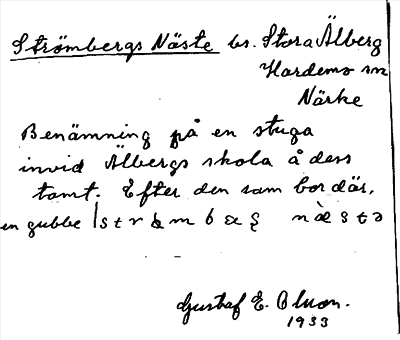 Strömbergs Näste br. Stora Älberg
Hardemo sn
Närke
Benämning på en stuga
invid Älbergs skola å dess
tomt. Efter den som bor där,
en gubbe
Gustaf E. Olsson.
1933